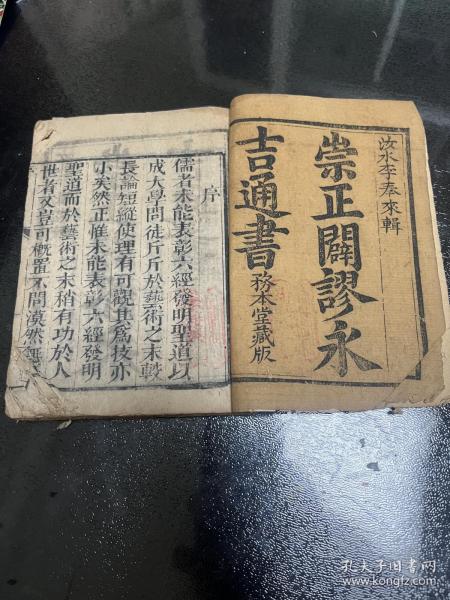 汝水李奉來輯
崇正闢謬永
吉通書
務本堂藏版
序
儒者不能表彰六經發明聖道以
成大學問徒斤斤於藝術之末較
長論短縱使理有可觀其爲技亦
小矣然正惟未能表彰六經發明
聖道而於藝術之末稍有功於人
世者又豈可概置不問漠然
孔夫子旧书网
www.kongfz.com